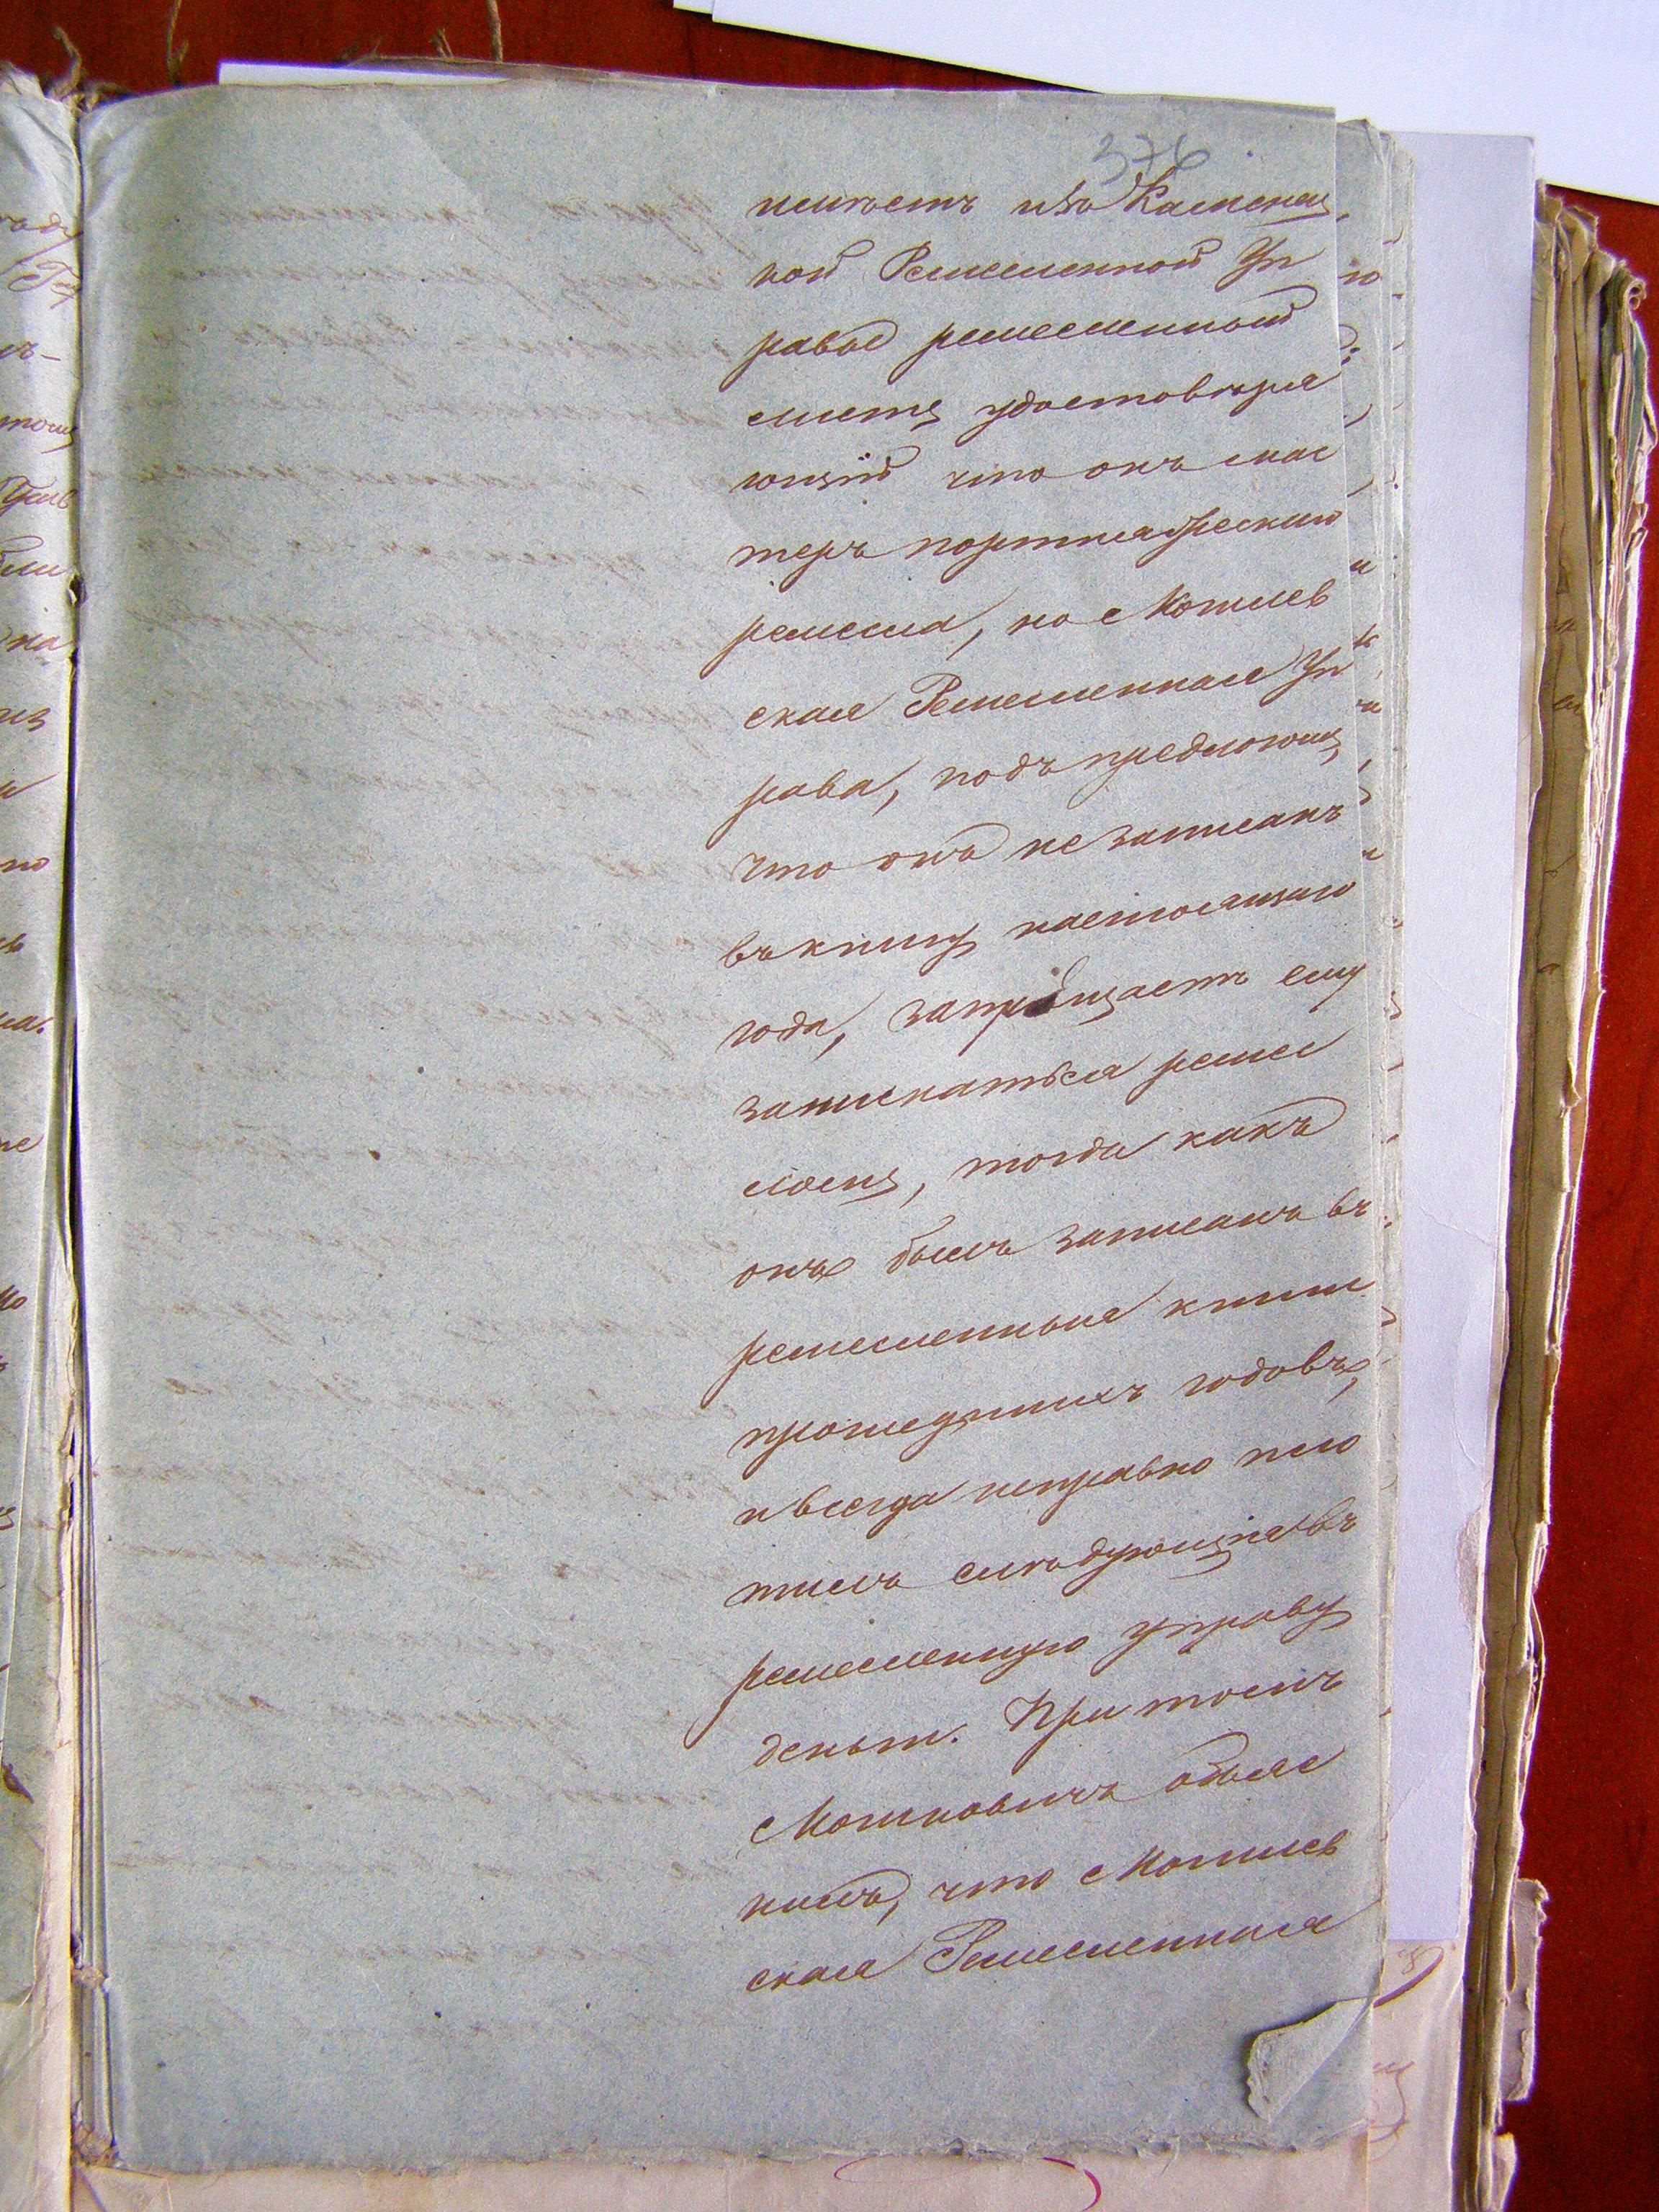 376
имѣетъ изъ Каменец
кой Ремесленной Уп
равы ремесленный
листъ удостовѣря
ющій что онъ мас
теръ портняжескаго
ремесла, но Могилев
ская Ремесленная Уп
рава, подъ предлогомъ
что онъ не записанъ
въ книгу настоящаго
года, запрещаетъ ему
заниматься ремес
ломъ, тогда какъ
онъ былъ записанъ въ
ремесленныя книги
прошедшихъ годовъ,
и всегда исправно пла
тилъ слѣдующія въ
ремесленную управу
деньги. При томъ
Мошковичъ объяс
нилъ, что Могилев
ская Ремесленная